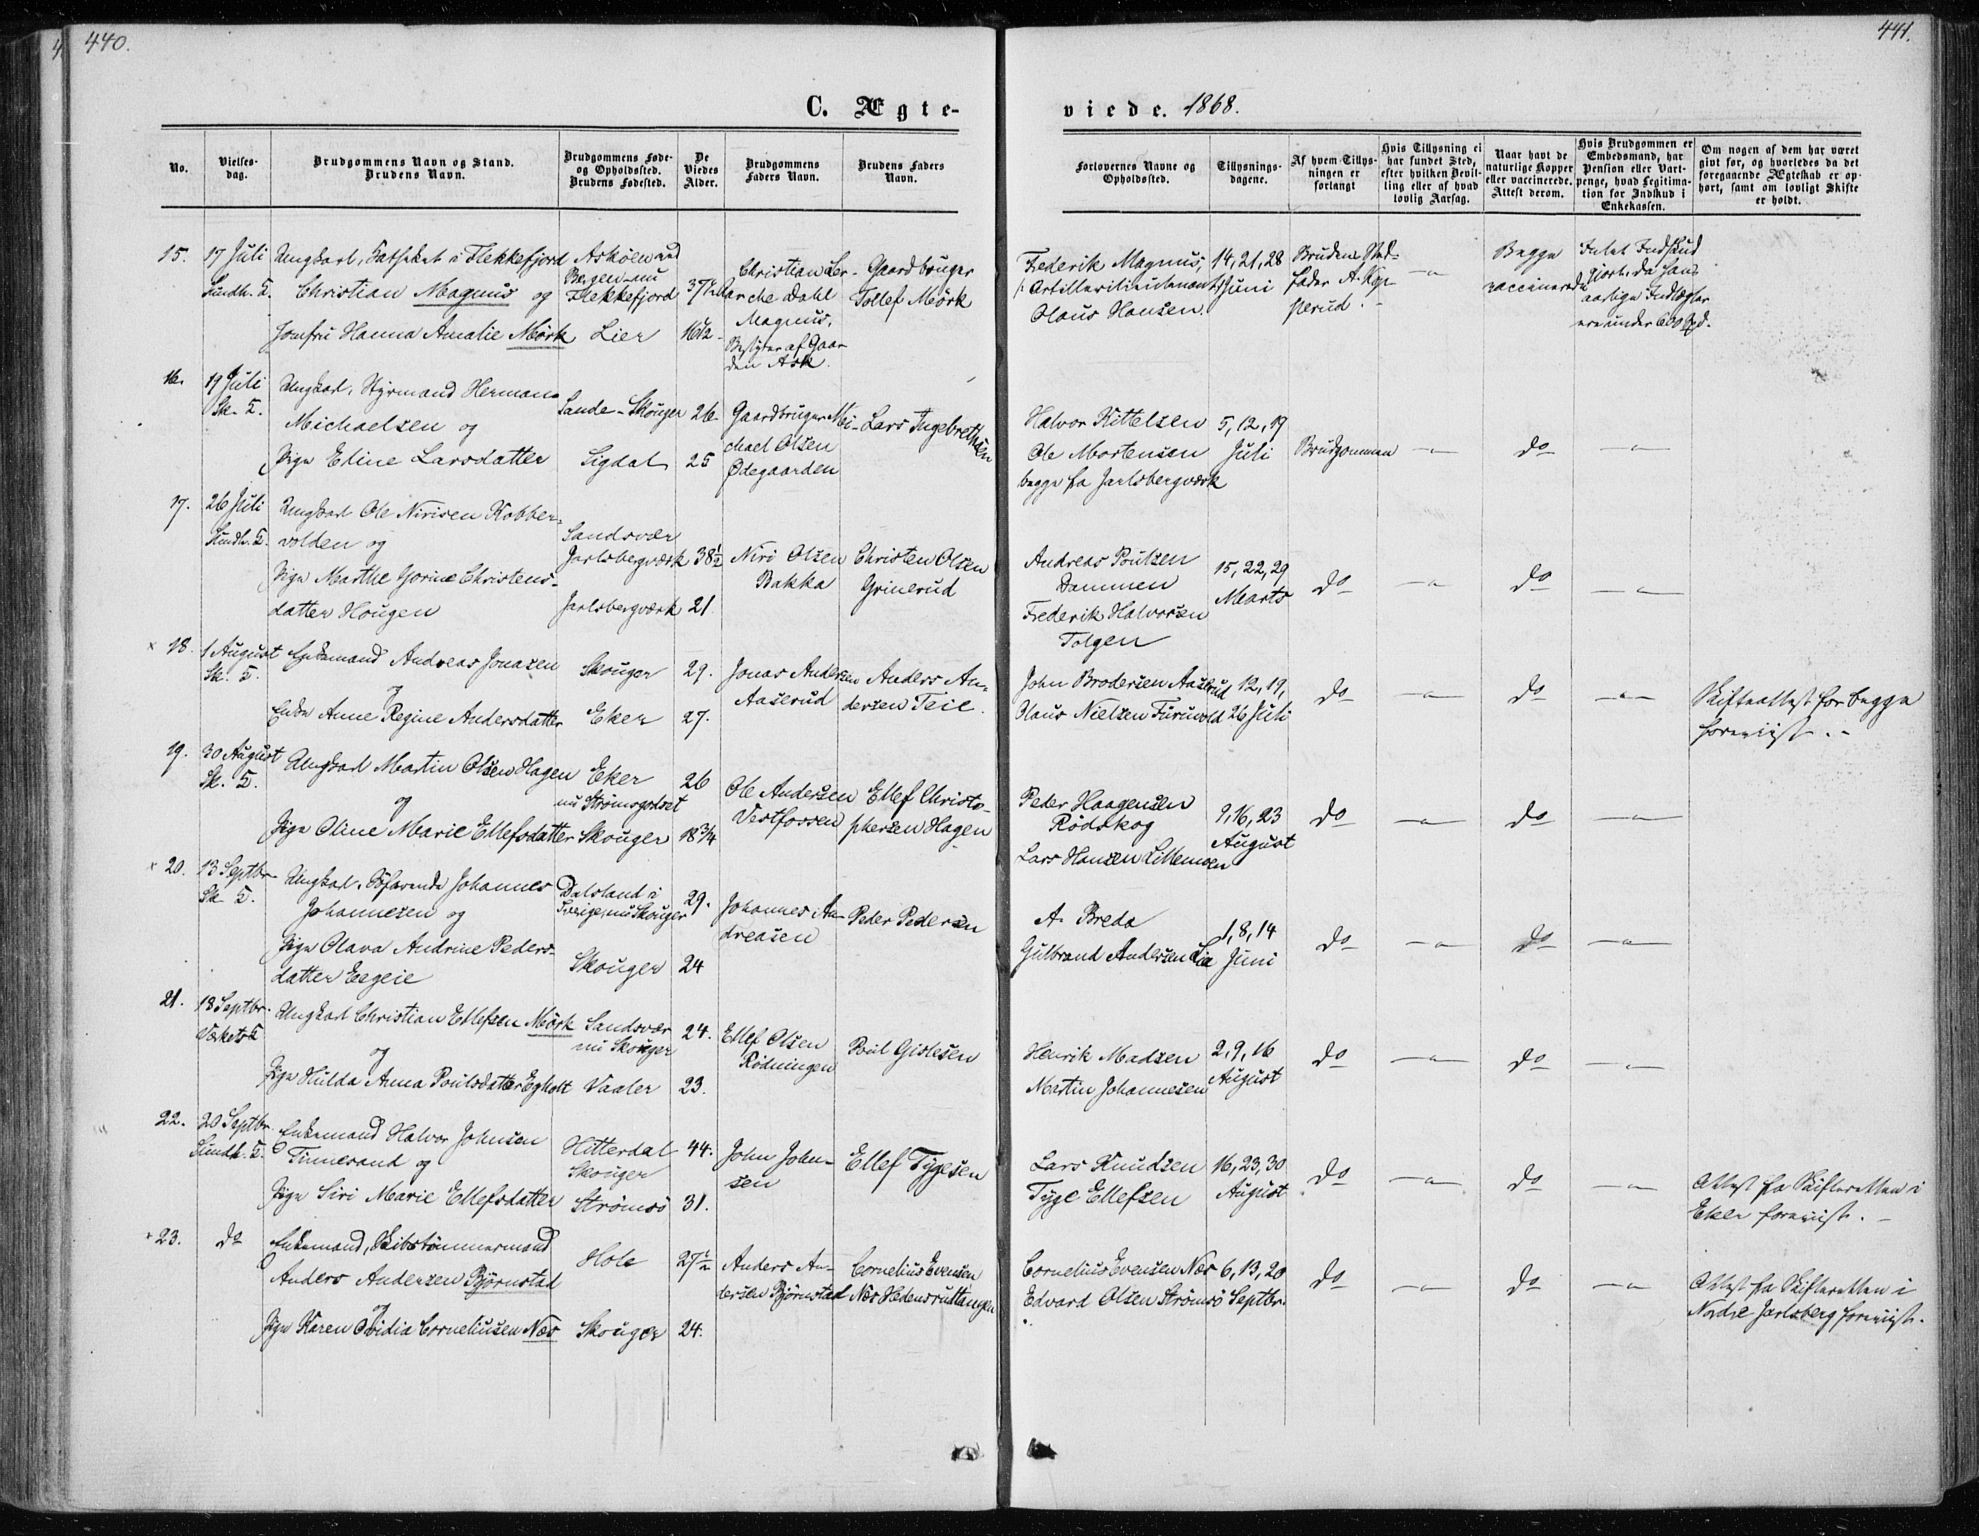 440.
441.
C. Ægte-
viede. 1868.
No.
Vielses-
dag.
Brudgommens Navn og Stand.
Brudens Navn.
Brudgommens Føde-
og Opholdssted.
Brudens Fødested.
De
Viedes
Alder.
Brudgommens
Faders Navn.
Brudens Faders
Navn.
Forlovernes Navne og
Opholdssted.
Tillysnings-
dagene.
Af hvem Tillys-
ningen er
forlangt
Hvis Tillysning ei
har fundet Sted,
efter hvilken Bevil-
ling eller af hvad
lovlig Aarsag.
Naar havt de
naturlige Kopper
eller vaccinerede.
Attest derom.
Hvis Brudgommen er
Embedsmand, har
Pension eller Vart-
penge, hvad Legitima-
tion for Indskud i
Enkekassen.
Om nogen af dem har været
givt før, og hvorledes da det
foregaaende Ægteskab er op-
hørt, samt om lovligt Skifte
er holdt.
15.
17 Juli
Sundh. T.
Ungkarl, i Flekkefjord
Christian Magnus og
Jomfru Hanna Amalie Mørk
Askøen ved
Bergen nu
Flekkefjord
Lier
37½
16½
Christian Ler-
che Dahl
Magnus,
Bestyrer af Gaar-
den Ask.
Gaardbruger
Tollef Mørk
Frederik Magnus,
Artillerilieutenant
Olaus Hansen.
14, 21, 28
Juni
Brudens Sted-
fader A. Kop-
perud.
— " —
Begge
vaccinerede
Intet Indskud
gjort, da hans
aarlige Indtægter
ere under 600 Spd.
16.
19 Juli
Sk. T.
Ungkarl, Styrmand Herman
Michaelsen og
Pige Eline Larsdatter
Sande - Skouger
Sigdal
26
25
Gaardbruger Mi-
chael Olsen
Ødegaarden
Lars Ingebrethsen
Halvor Kittelsen
Ole Mortensen
begge fra Jarlsbergværk
5, 12, 19
Juli
Brudgommen
— " —
do
— " —
17.
26 Juli
Sundh. T.
Ungkarl Ole Nirisen Kobber-
volden og
Pige Marthe Gorine Christens-
datter Hougen
Sandsvær
Jarlsbergværk
Jarlsbergværk
38½
21.
Niri Olsen
Bakka
Christen Olsen
Grinerud
Andreas Poulsen
Dammen
Frederik Halvorsen
Tolgen
15, 22, 29
Marts
do
— " —
do
— " —
× 18.
1 August
Sk. T.
Enkemand Andreas Jonasen
og
Enke Anne Regine Andersdatter
Skouger
Eker
29.
27.
Jonas Andersen
Aaserud
Anders An-
dersen Teie.
John Brodersen Aaserud
Olaus Nielsen Furuvold
12, 19,
26 Juli
do
— " —
do
— " —
Skifteattest for begge
foreviist. -
19.
30 August
Sk. T.
Ungkarl Martin Olsen Hagen
og
Pige Oline Marie Ellefsdatter
Eker
nu Strømsgodset
Skouger
26
18¾
Ole Andersen
Vestfossen
Ellef Christo-
phersen Hagen
Peder Haagensen
Rødskog
Lars Hansen
9, 16, 23
August
do
— " —
do
— " —
× 20.
13 Septbr.
Sk. T.
Ungkarl, Søfarende Johannes
Johannesen og
Pige Olava Andrine Peders-
datter Eegeie
Dalsland i
Sverige, nu Skouger
Skouger
29.
24
Johannes An-
dreasen
Peder Pedersen
A. Breda
Gulbrand Andersen Lia
1, 8, 14
Juni
do
— " —
do
— " —
21.
18 Septbr.
Ungkarl Christian Ellefsen Mørk
og
Pige Hulda Anna Poulsdatter Egholt
Sandsvær
nu Skouger
Vaaler
24.
23.
Ellef Olsen
Rødningen
Poul Gislesen
Henrik Madsen
Martin Johannesen
2, 9, 16
August
do
— " —
do
— " —
22.
20 Septbr.
Sundh. T.
Enkemand Halvor Johnsen
Tinnesand og
Pige Siri Marie Ellefsdatter
Hitterdal
Skouger
Strømsø
44.
31.
John John-
sen
Ellef Tygesen
Lars Knudsen
Tyge Ellefsen
16, 23, 30
August
do
— " —
do
— " —
Attest fra Skifteretten i
Eker foreviist. -
× 23.
do
Enkemand, Skibstømmermand
Anders Andersen Bjørnstad
og
Pige Karen Ovidia Corneliusen Næs
Hole
Skouger
27½
24.
Anders An-
dersen Bjørnstad
Cornelius Evensen
Næs Hedensrudtangen
Cornelius Evensen Næs
Edvard Olsen Strømsø
6, 13, 20
Septbr.
do
— " —
do
— " —
Attest fra Skifteretten i
Nordre Jarlsberg foreviist.